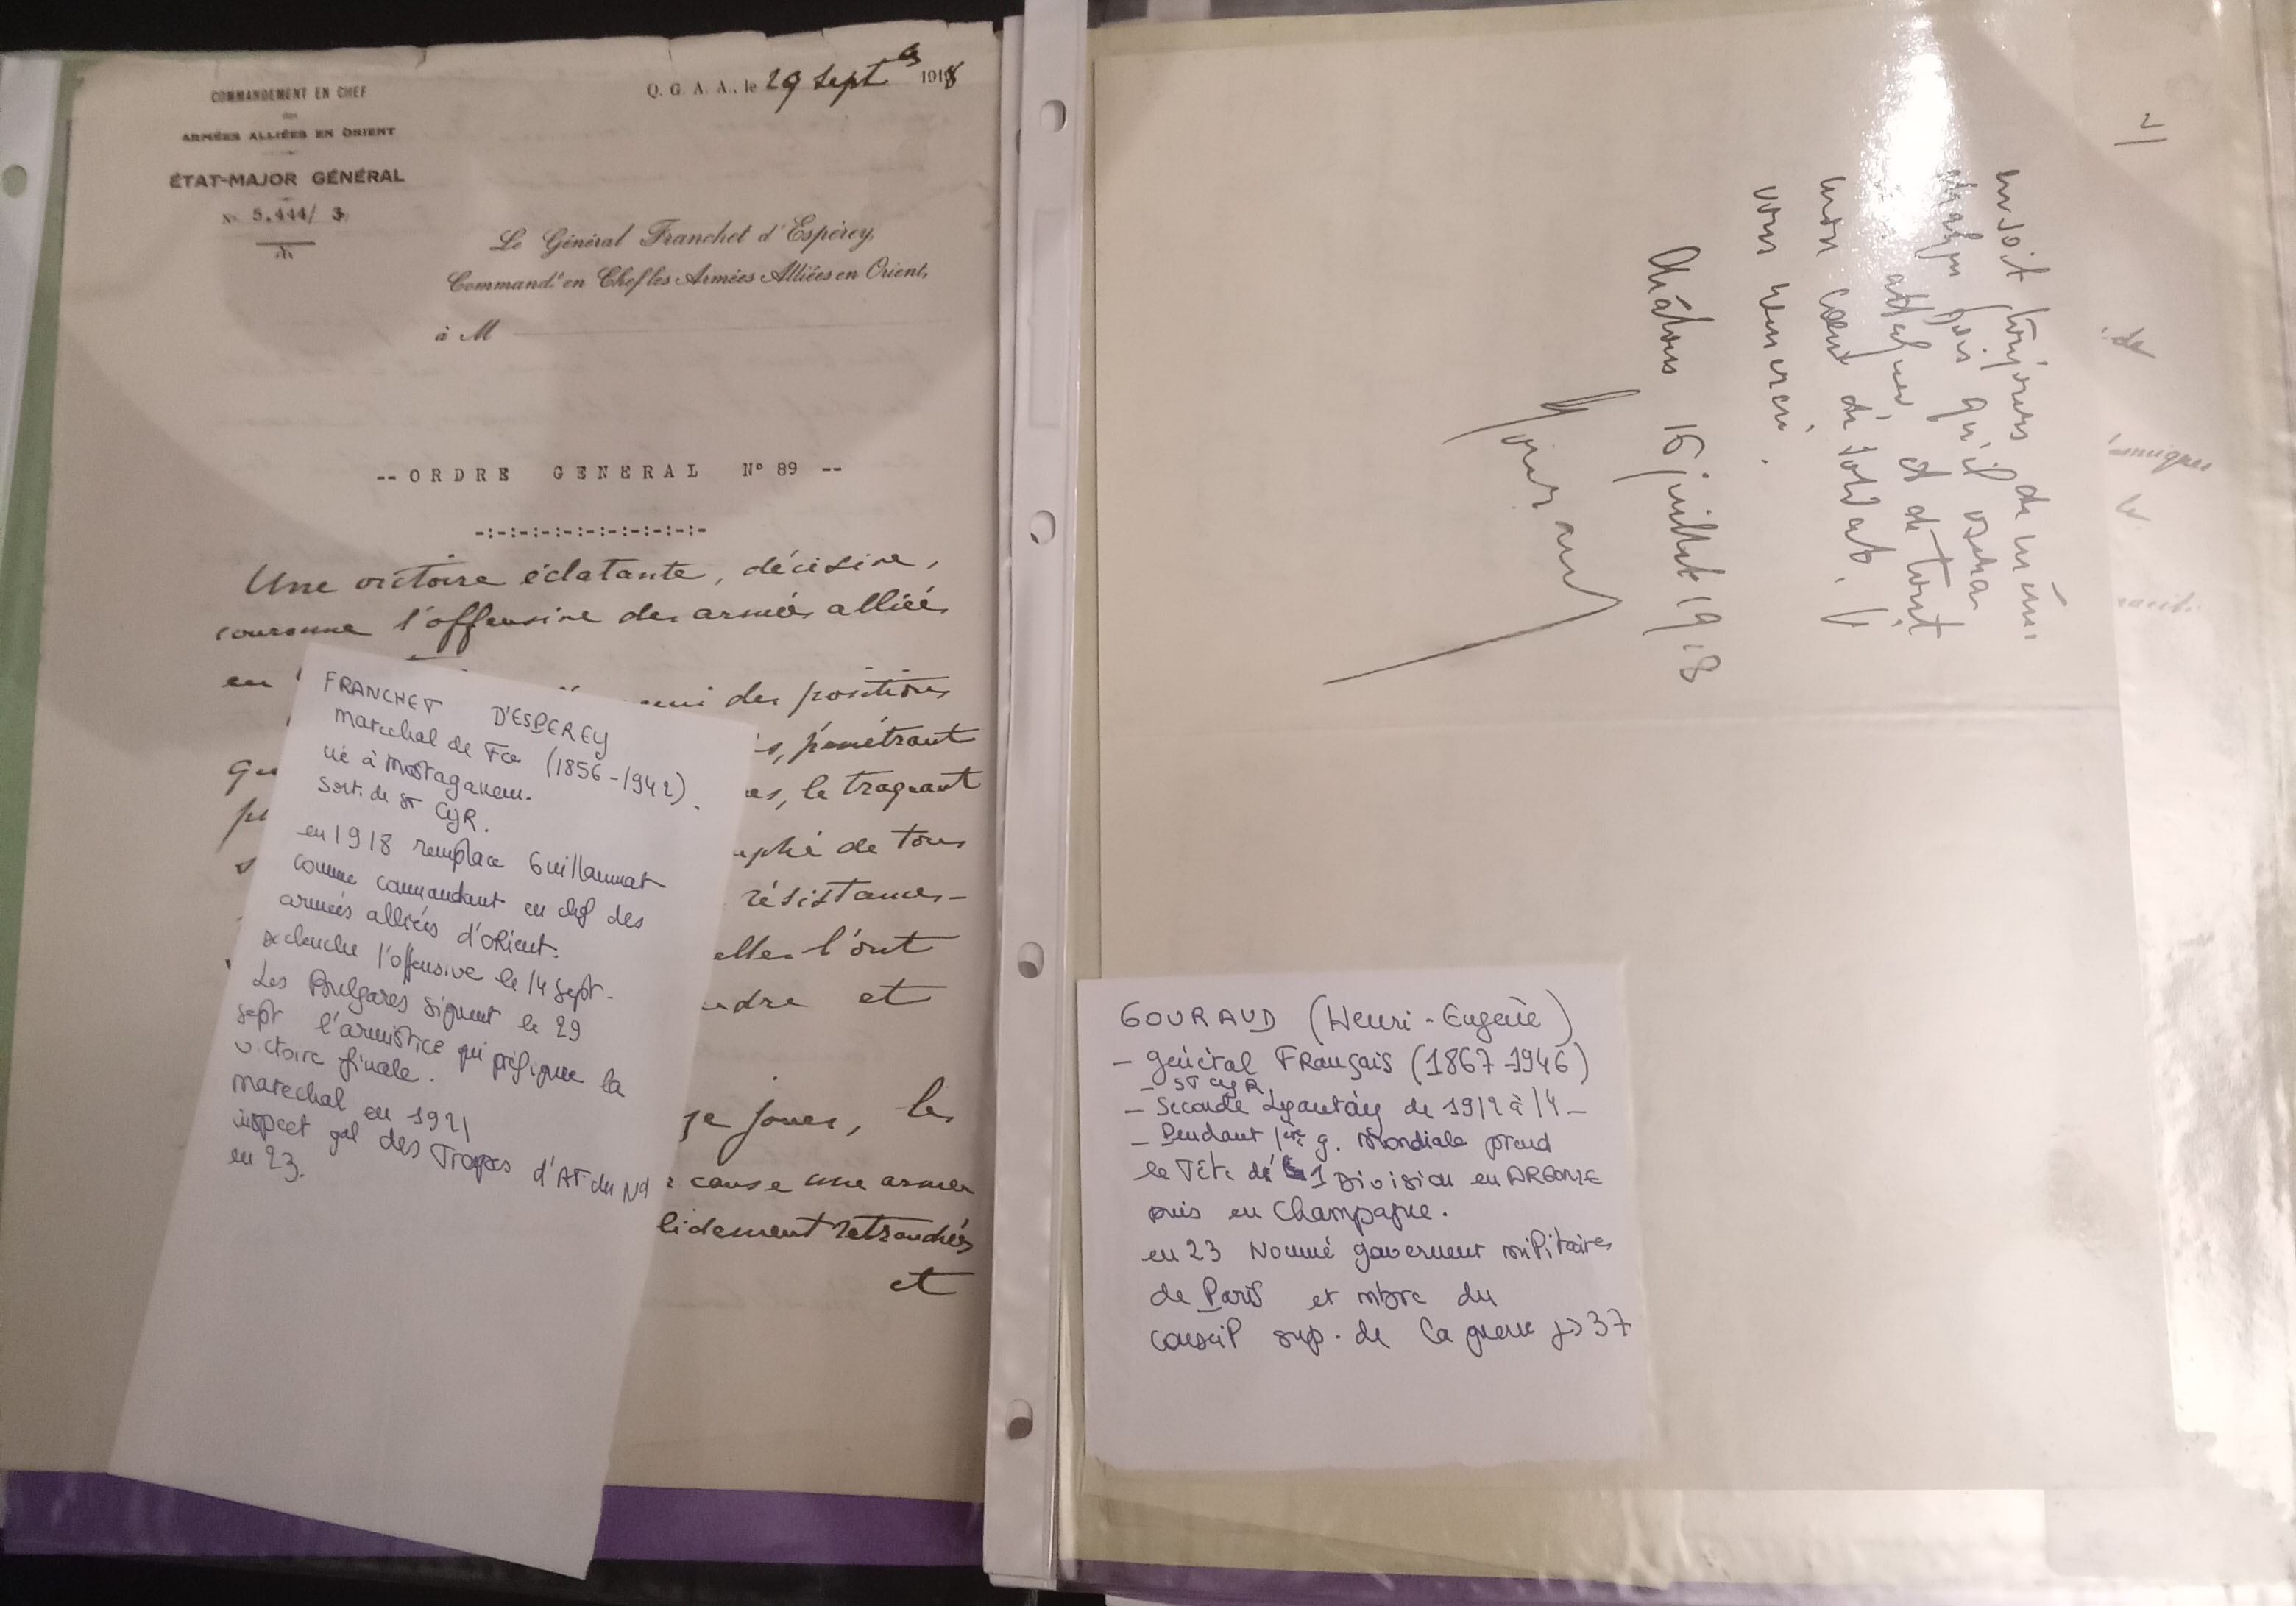 COMMANDEMENT EN CHEF
des
ARMÉES ALLIÉES EN ORIENT
ÉTAT-MAJOR GÉNÉRAL
N° 5.444/ 3
Q. G. A. A., le 29 Septbre 1918
Le Général Franchet d'Espèrey,
Commandt en Chef les Armées Alliées en Orient,
à M
-- ORDRE GENERAL N° 89 --
-:-:-:-:-:-:-:-:-:-:-
Une victoire éclatante, décisive,
couronne l'offensive des armées alliées
en
des positions
pénétrant
le traquant
de tous
résistances-
elles l'ont
et
jours, les
cause une armée
retranchés
et
FRANCHET D'ESPEREY
Marechal de Fce (1856-1942).
né à Mostaganem.
Sort. de St CYR.
en 1918 remplace Guillaumat
comme commandant en chef des
armées alliées d'ORient.
declenche l'offensive le 14 sept.
Les Bulgares signent le 29
sept l'armistice qui préfigure la
victoire finale.
Marechal en 1921
inspect gal des Troupes d'Af. du Nd
en 23.
2
en soit toujours de même
qu'il
attaques, et de tout
mon cœur de soldat, je
vous remercie.
Châlons 16 juillet 1918
Gouraud
de
GOURAUD (Henri-Eugène)
- général FRançais (1867-1946)
- ST cyR
- Seconde Lyautey de 1912 à 14 -
- Pendant 1ère g. Mondiale prend
la Tête de 1 Division en ARGONNE
puis en Champagne.
en 23 Nommé gouverneur militaires
de Paris et mbre du
conseil sup. de la guerre j-> 37